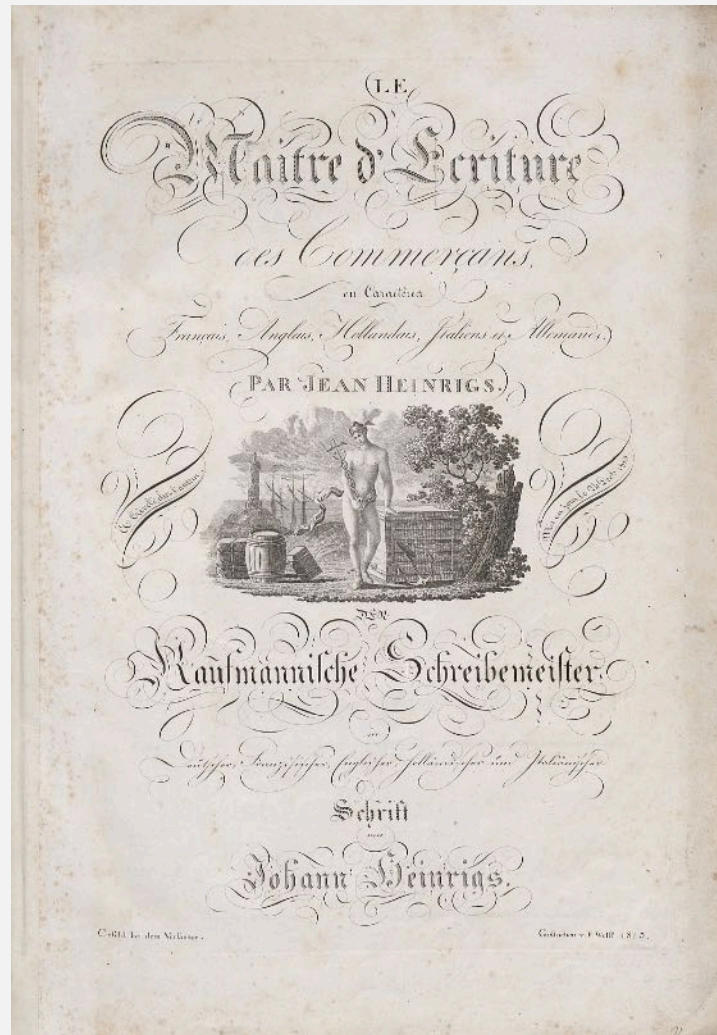 LE
Maitre d'Ecriture
des Commerçans,
en Caractères
Français, Anglais, Hollandais, Italiens et Allemands.
PAR JEAN HEINRIGS.
DER
Kaufmännische Schreibemeister
in
Deutscher, Französischer, Englischer, Holländischer und Italiänischer
Schrift
von
Johann Heinrigs.
bei dem Verfasser.
Gestochen v. F. Wolff